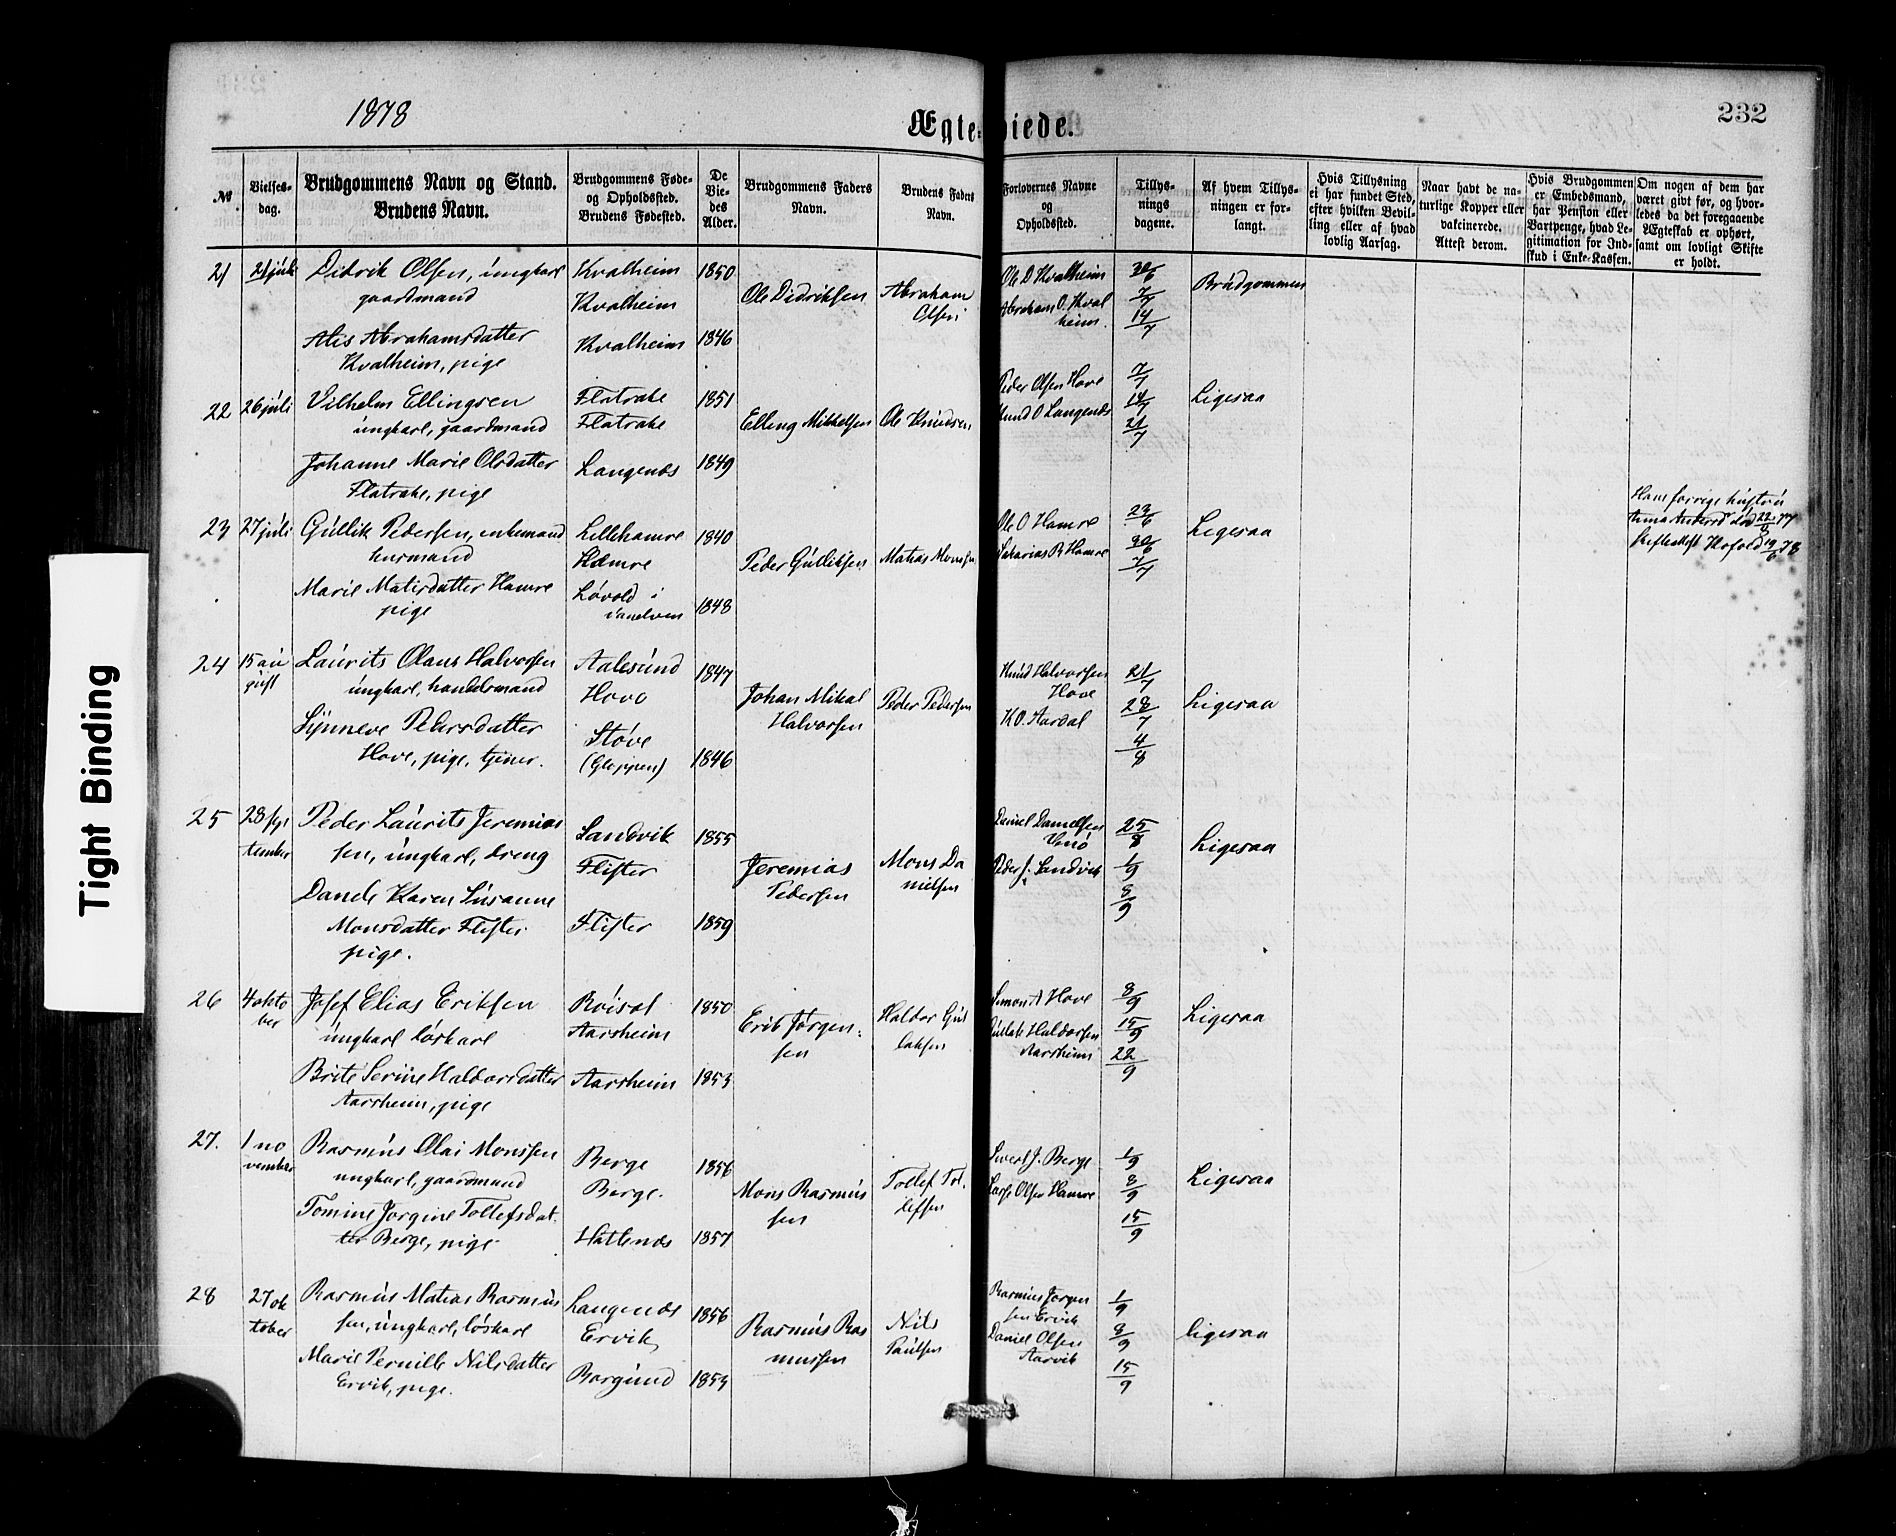 1878
Ægteviede.
232
Tight Binding
№
Vielses-
dag.
Brudgommens Navn og Stand.
Brudens Navn.
Brudgommens Føde-
og Opholdssted.
Brudens Fødested.
De
Vie-
des
Alder.
Brudgommens Faders
Navn.
Brudens Faders
Navn.
Forlovernes Navne
og
Opholdssted.
Tillys-
nings
dagene.
Af hvem Tillys-
ningen er for-
langt.
Hvis Tillysning
ei har fundet Sted,
efter hvilken Bevil-
ling eller af hvad
lovlig Aarsag.
Naar havt de na-
turlige Kopper eller
vakcinerede.
Attest derom.
Hvis Brudgommen
er Embedsmand,
har Pension eller
Vartpenge, hvad Le-
gitimation for Ind-
skud i Enke-Kassen.
Om nogen af dem har
været givt før, og hvor-
ledes da det foregaaende
Ægteskab er ophørt,
samt om lovligt Skifte
er holdt.
21
21 juli
Didrik Olsen, ungkarl
gaardmand
Abrahamsdatter
Kvalheim, pige
Kvalheim
Kvalheim
Kvalheim
1850
1846
Ole Didriksen
Abraham
Olsen
Ole D Kvalheim
Abraham O. Kval
heim.
30/6
7/7
14/7
Brudgommen
22
26 juli
Vilhelm Ellingsen
ungkarl, gaardmand
Johanne Marie Olsdatter
Flatrake, pige
Flatrake
Flatrake
Langenæs
1851
1849
Elling Mikkelsen
Ole Knudsen
Peder Olsen Hove
Knud O Langenæs
7/7
14/7
21/7
Ligesaa
23
27 juli
Gullik Pedersen, enkemand
husmand
Marie Matisdatter Hamre
pige
Lillehamre
Hamre
Løvold i
1840
1848
Peder Gulliksen
Matias Monsen
Ole O Hamre
Sakarias R Hamre
23/6
30/6
7/7
Ligesaa
Hans forrige hustru
Anna Andersd død 22/8 77
skifteattest Hofold 19/6 78
24
15 au
gust
Laurits Olaus Halvorsen
ungkarl, handelsmand
Synneve Pedersdatter
Hove, pige, tjener.
Aalesund
Hove
Støve
(Gloppen)
1847
1846
Johan Mikal
Halvorsen
Peder Pedersen
Knud Halvorsen
Hove
K O. Aardal
21/7
28/7
4/8
Ligesaa
25
28 sep
tember
Peder Laurits Jeremias
sen, ungkarl, dreng
Karen Susanne
Monsdatter Flister
pige.
Sandvik
Flister
Flister
1855
1859
Jeremias
Pedersen
Mons Da
nielsen
Daniel Danielsen
Peder J. Sandvik
25/8
1/9
8/9
Ligesaa
26
4 okto
ber
Josef Elias Eriksen
ungkarl løskarl
Brite Serine Haldorsdatter
Aarsheim, pige
Røisal
Aarsheim
Aarsheim
1850
1853
Erik Jørgen-
sen
Haldor Gul
laksen
Simon A Hove
Gullak Haldorsen
Aarsheim
8/9
15/9
22/9
Ligesaa
27.
1 no
vember
Rasmus Olai Monssen
ungkarl, gaardmand
Tomine Jorgine Tollefsdat-
ter Berge, pige
Berge
Berge.
Hatlenæs
1856
1857
Mons Rasmus
sen
Tollef Tol
lefsen
Sivert J. Berge
Lars Olsen Hamre
1/9
8/9
15/9
Ligesaa
28
27 ok
tober
Rasmus Matias Rasmus
sen, ungkarl, løskarl
Marie Pernille Nilsdatter
Ervik, pige.
Langenæs
Ervik
Borgund
1856
1853
Rasmus Ras
mussen
Nils
Paulsen
Rasmus Jørgen
sen Ervik
Daniel Olsen
Aarvik
1/9
8/9
15/9
ligesaa